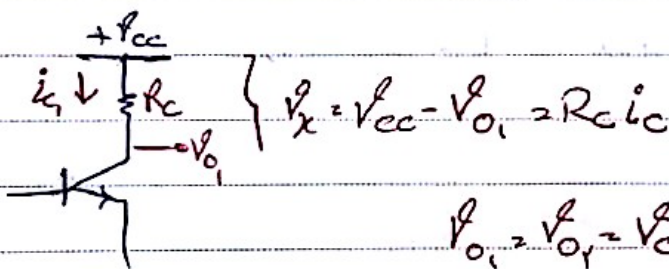 +Vcc
ic₁ ↓ Rc } Vx = Vcc - Vo₁ = Rc ic
Vo₁
Vo₁ = Voᵧ = Vc